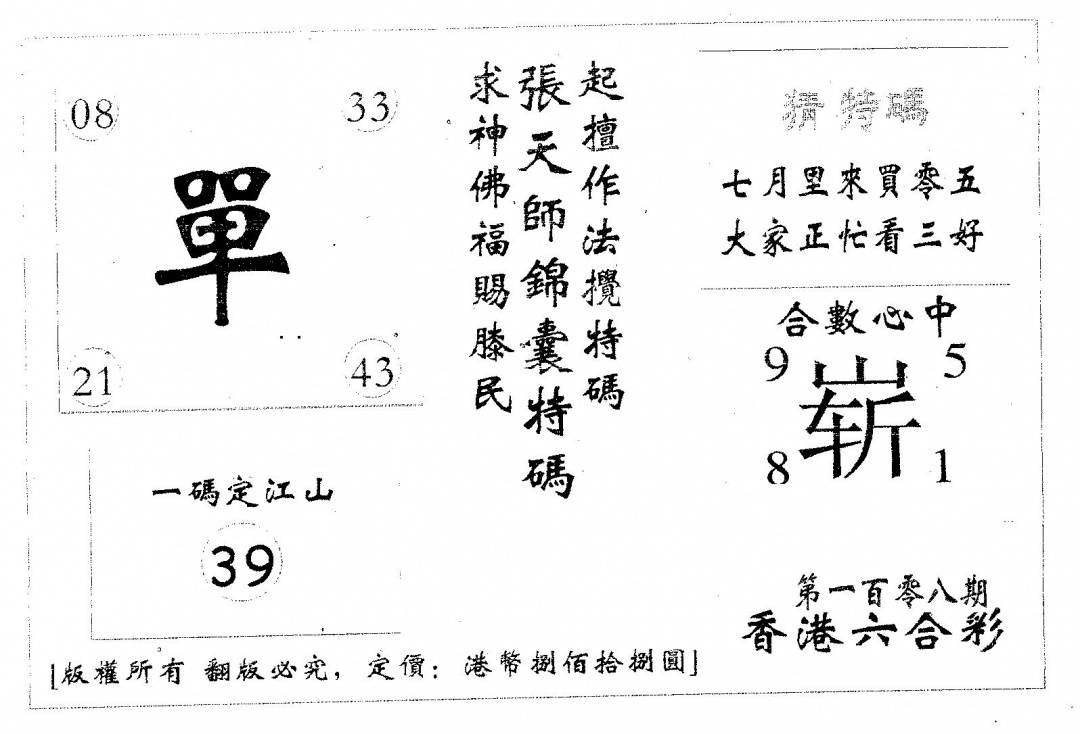 08 33
單
21 43
一碼定江山
39
起擅作法攪特碼
張天師錦囊特碼
求神佛福賜滕民
猜特碼
七月里來買零五
大家正忙看三好
合數必中
9 5
崭
8 1
第一百零八期
香港六合彩
[版權所有 翻版必究, 定價: 港幣捌佰拾捌圓]